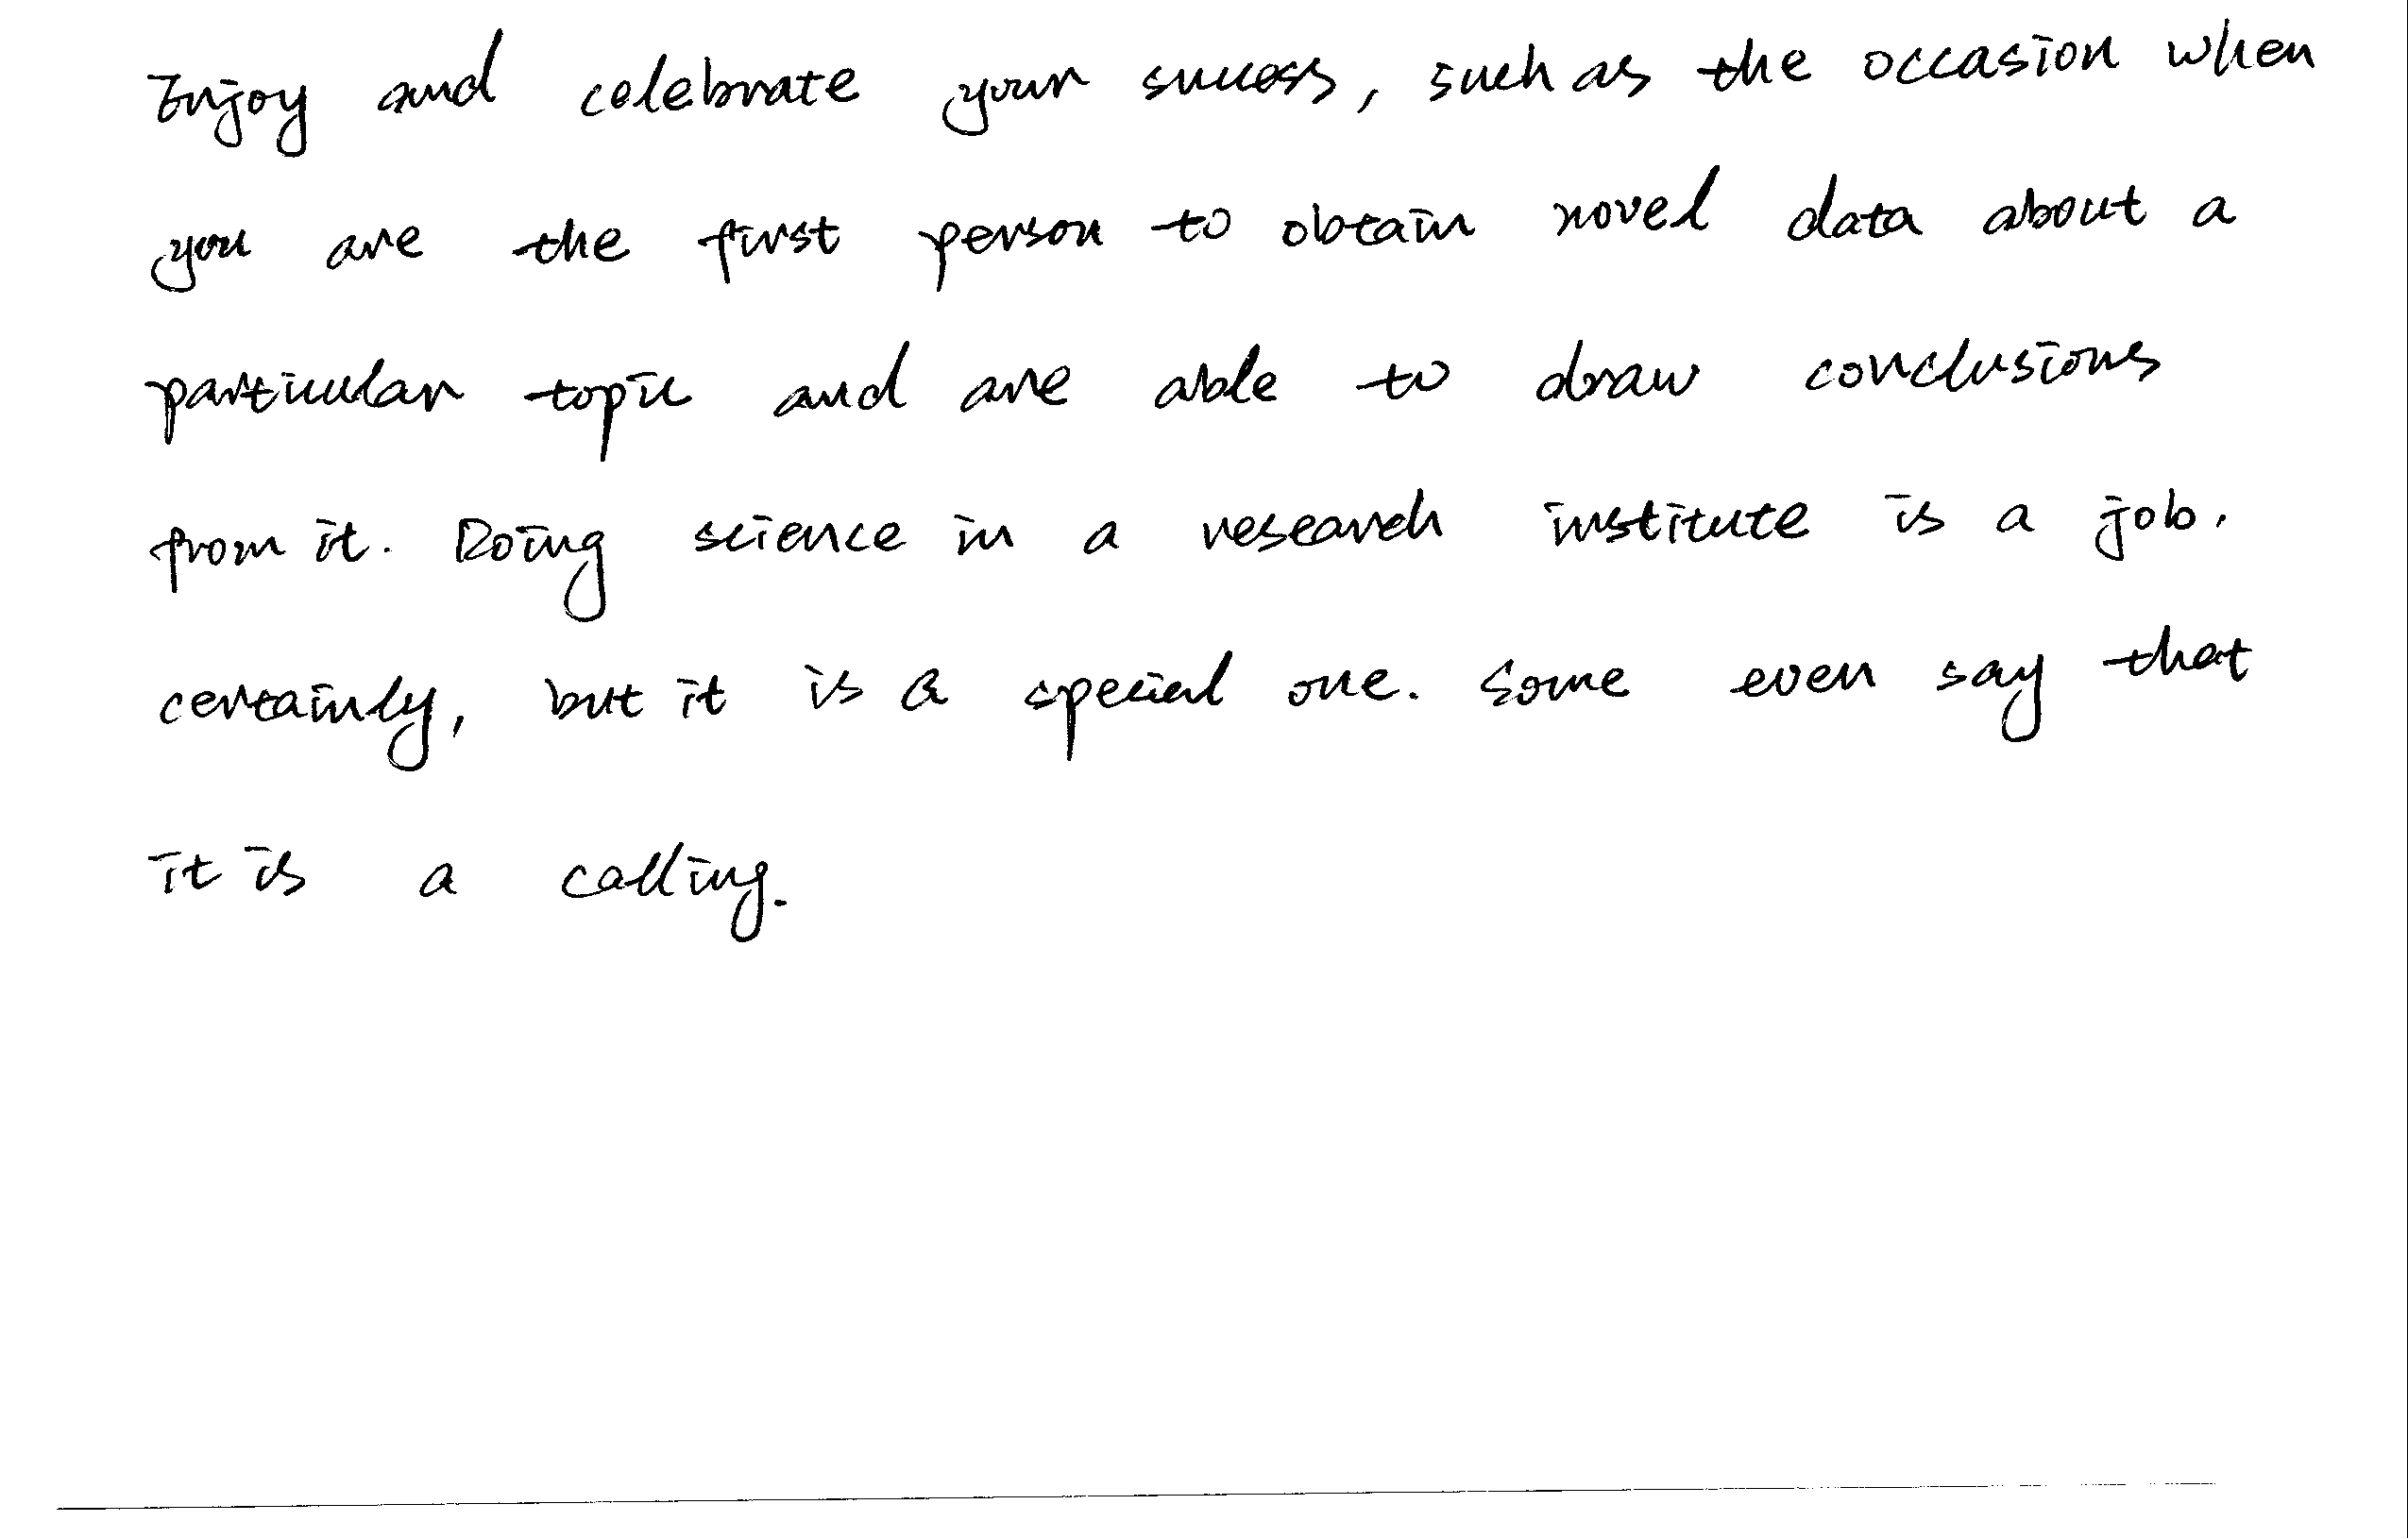 Enjoy and celebrate your success, such as the occasion when
you are the first person to obtain novel data about a
particular topic and are able to draw conclusions
from it. Doing science in a research institute is a job.
certainly, but it is a special one. Some even say that
it is a calling.